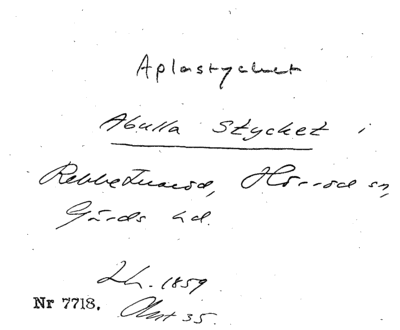 Aplastycket
Abulla Stycket i
Rebbetuaröd, Hörröd sn,
Gärds hd.
Lh. 1859
Nr 7718. Akt 35.